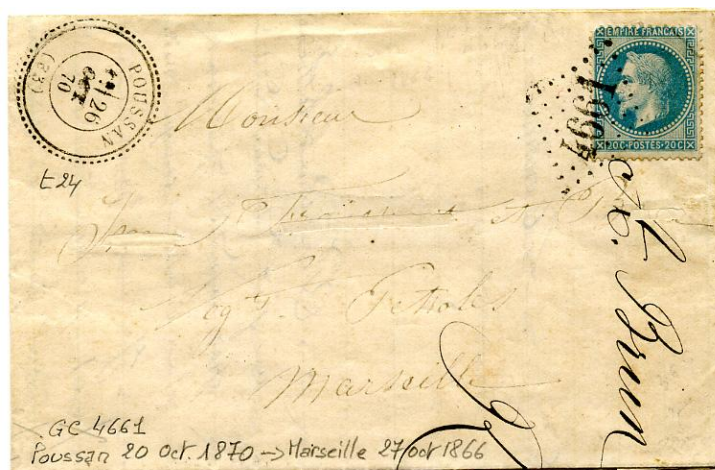 POUSSAN
26
OCT.
70
(33)
EMPIRE FRANÇAIS
20C·POSTES·20C
4661
Monsieur
t24
Negt Petroles
Marseille
Brun
GC 4661
Poussan 20 oct. 1870 -> Marseille 27 oct 1866